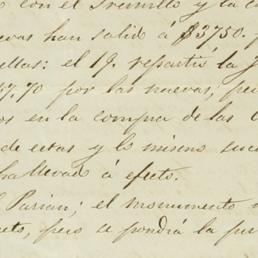 con el Tremillo y la c
evas han salido á $3750.
ellas: el 19. repartió la J
7.70 por las nuevas; pe
os en la compra de las
de estas y lo mismo suc
ha llevado á efecto.
Parian; el monumento
eto, pero se pondrá la